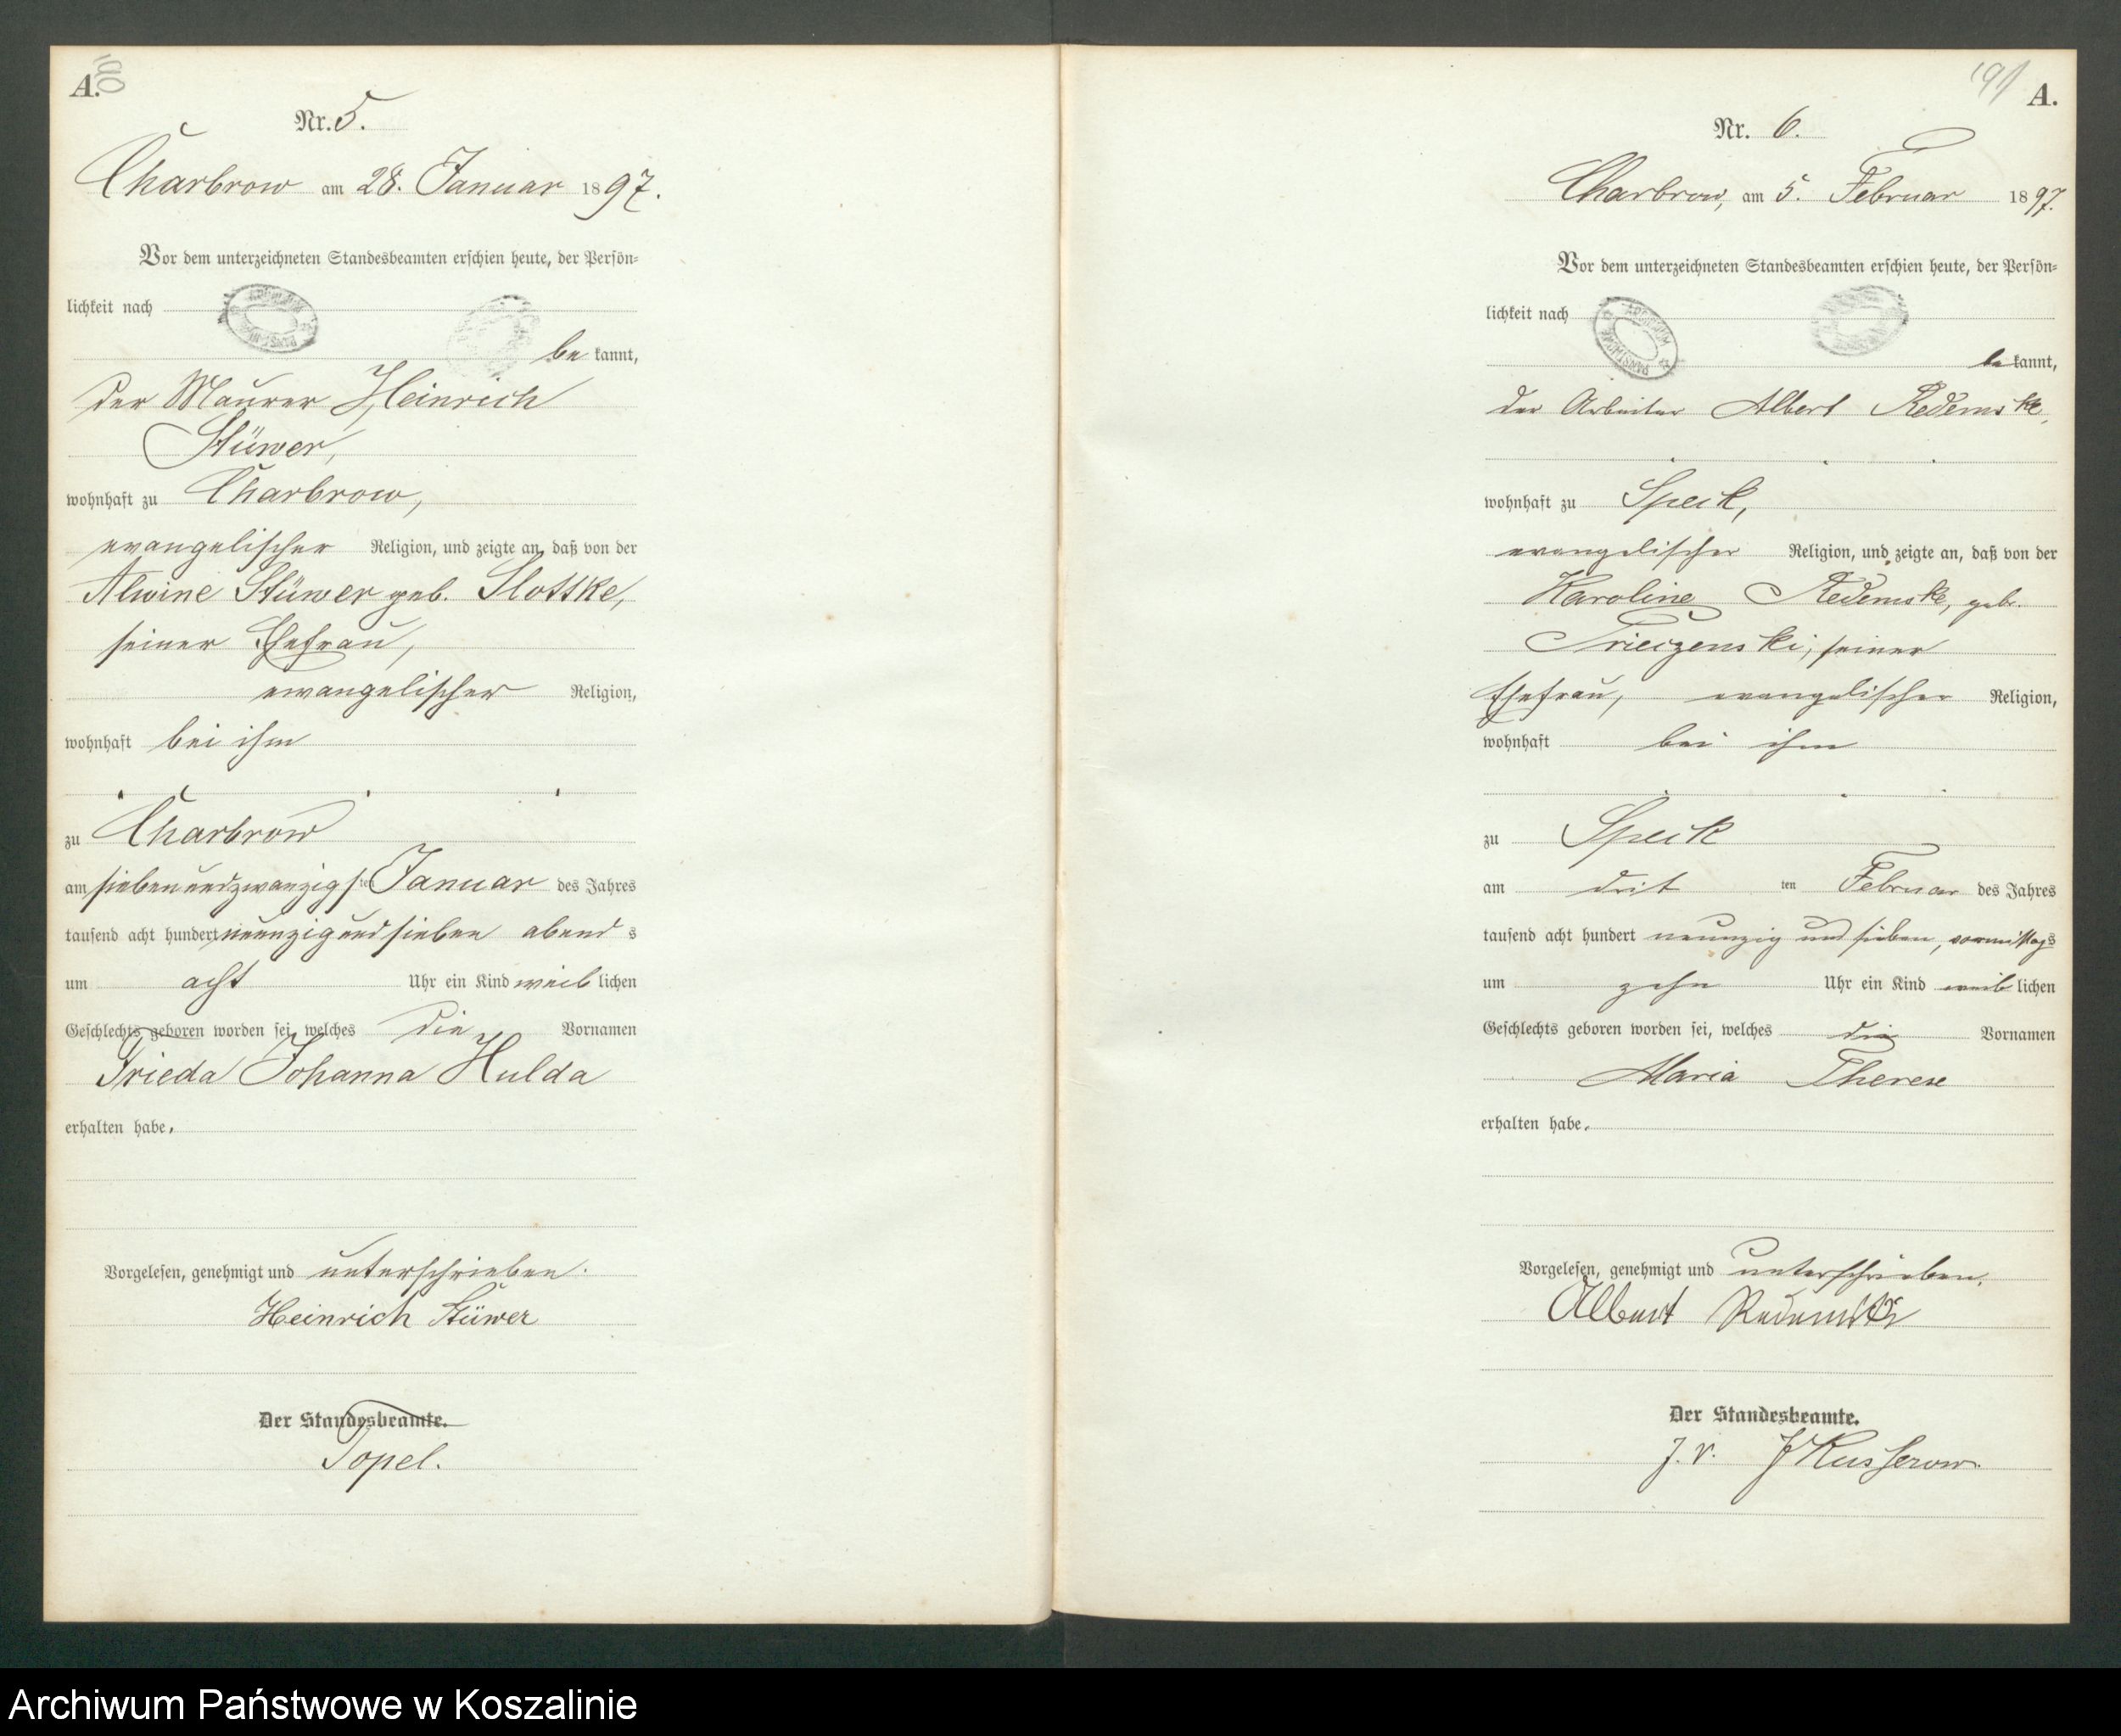 A.
Nr. 5.
Charbrow am 28. Januar 1897.
Vor dem unterzeichneten Standesbeamten erschien heute, der Persön=
lichkeit nach
be kannt,
der Maurer Heinrich
Stüwer,
wohnhaft zu Charbrow,
evangelischer Religion, und zeigte an, daß von der
Alwine Stüwer geb. Slottke,
seiner Ehefrau,
evangelischer Religion,
wohnhaft bei ihm
zu Charbrow
am siebenundzwanzigsten Januar des Jahres
tausend acht hundert neunzig und sieben abends
um acht Uhr ein Kind weiblichen
Geschlechts geboren worden sei, welches die Vornamen
Frieda Johanna Hulda
erhalten habe.
Vorgelesen, genehmigt und unterschrieben.
Heinrich Stüwer
Der Standesbeamte.
Topel.
191
A.
Nr. 6.
Charbrow, am 5. Februar 1897.
Vor dem unterzeichneten Standesbeamten erschien heute, der Persön=
lichkeit nach
be kannt,
der Arbeiter Albert Redemske,
wohnhaft zu Speck,
evangelischer Religion, und zeigte an, daß von der
Karoline Redemske, geb.
seiner
Ehefrau, evangelischer Religion,
wohnhaft bei ihm
zu Speck
am dritten Februar des Jahres
tausend acht hundert neunzig und sieben, vormittags
um zehn Uhr ein Kind weiblichen
Geschlechts geboren worden sei, welches die Vornamen
Maria Therese
erhalten habe.
Vorgelesen, genehmigt und unterschrieben.
Albert Redemske
Der Standesbeamte.
J. V. Kusserow.
Archiwum Państwowe w Koszalinie